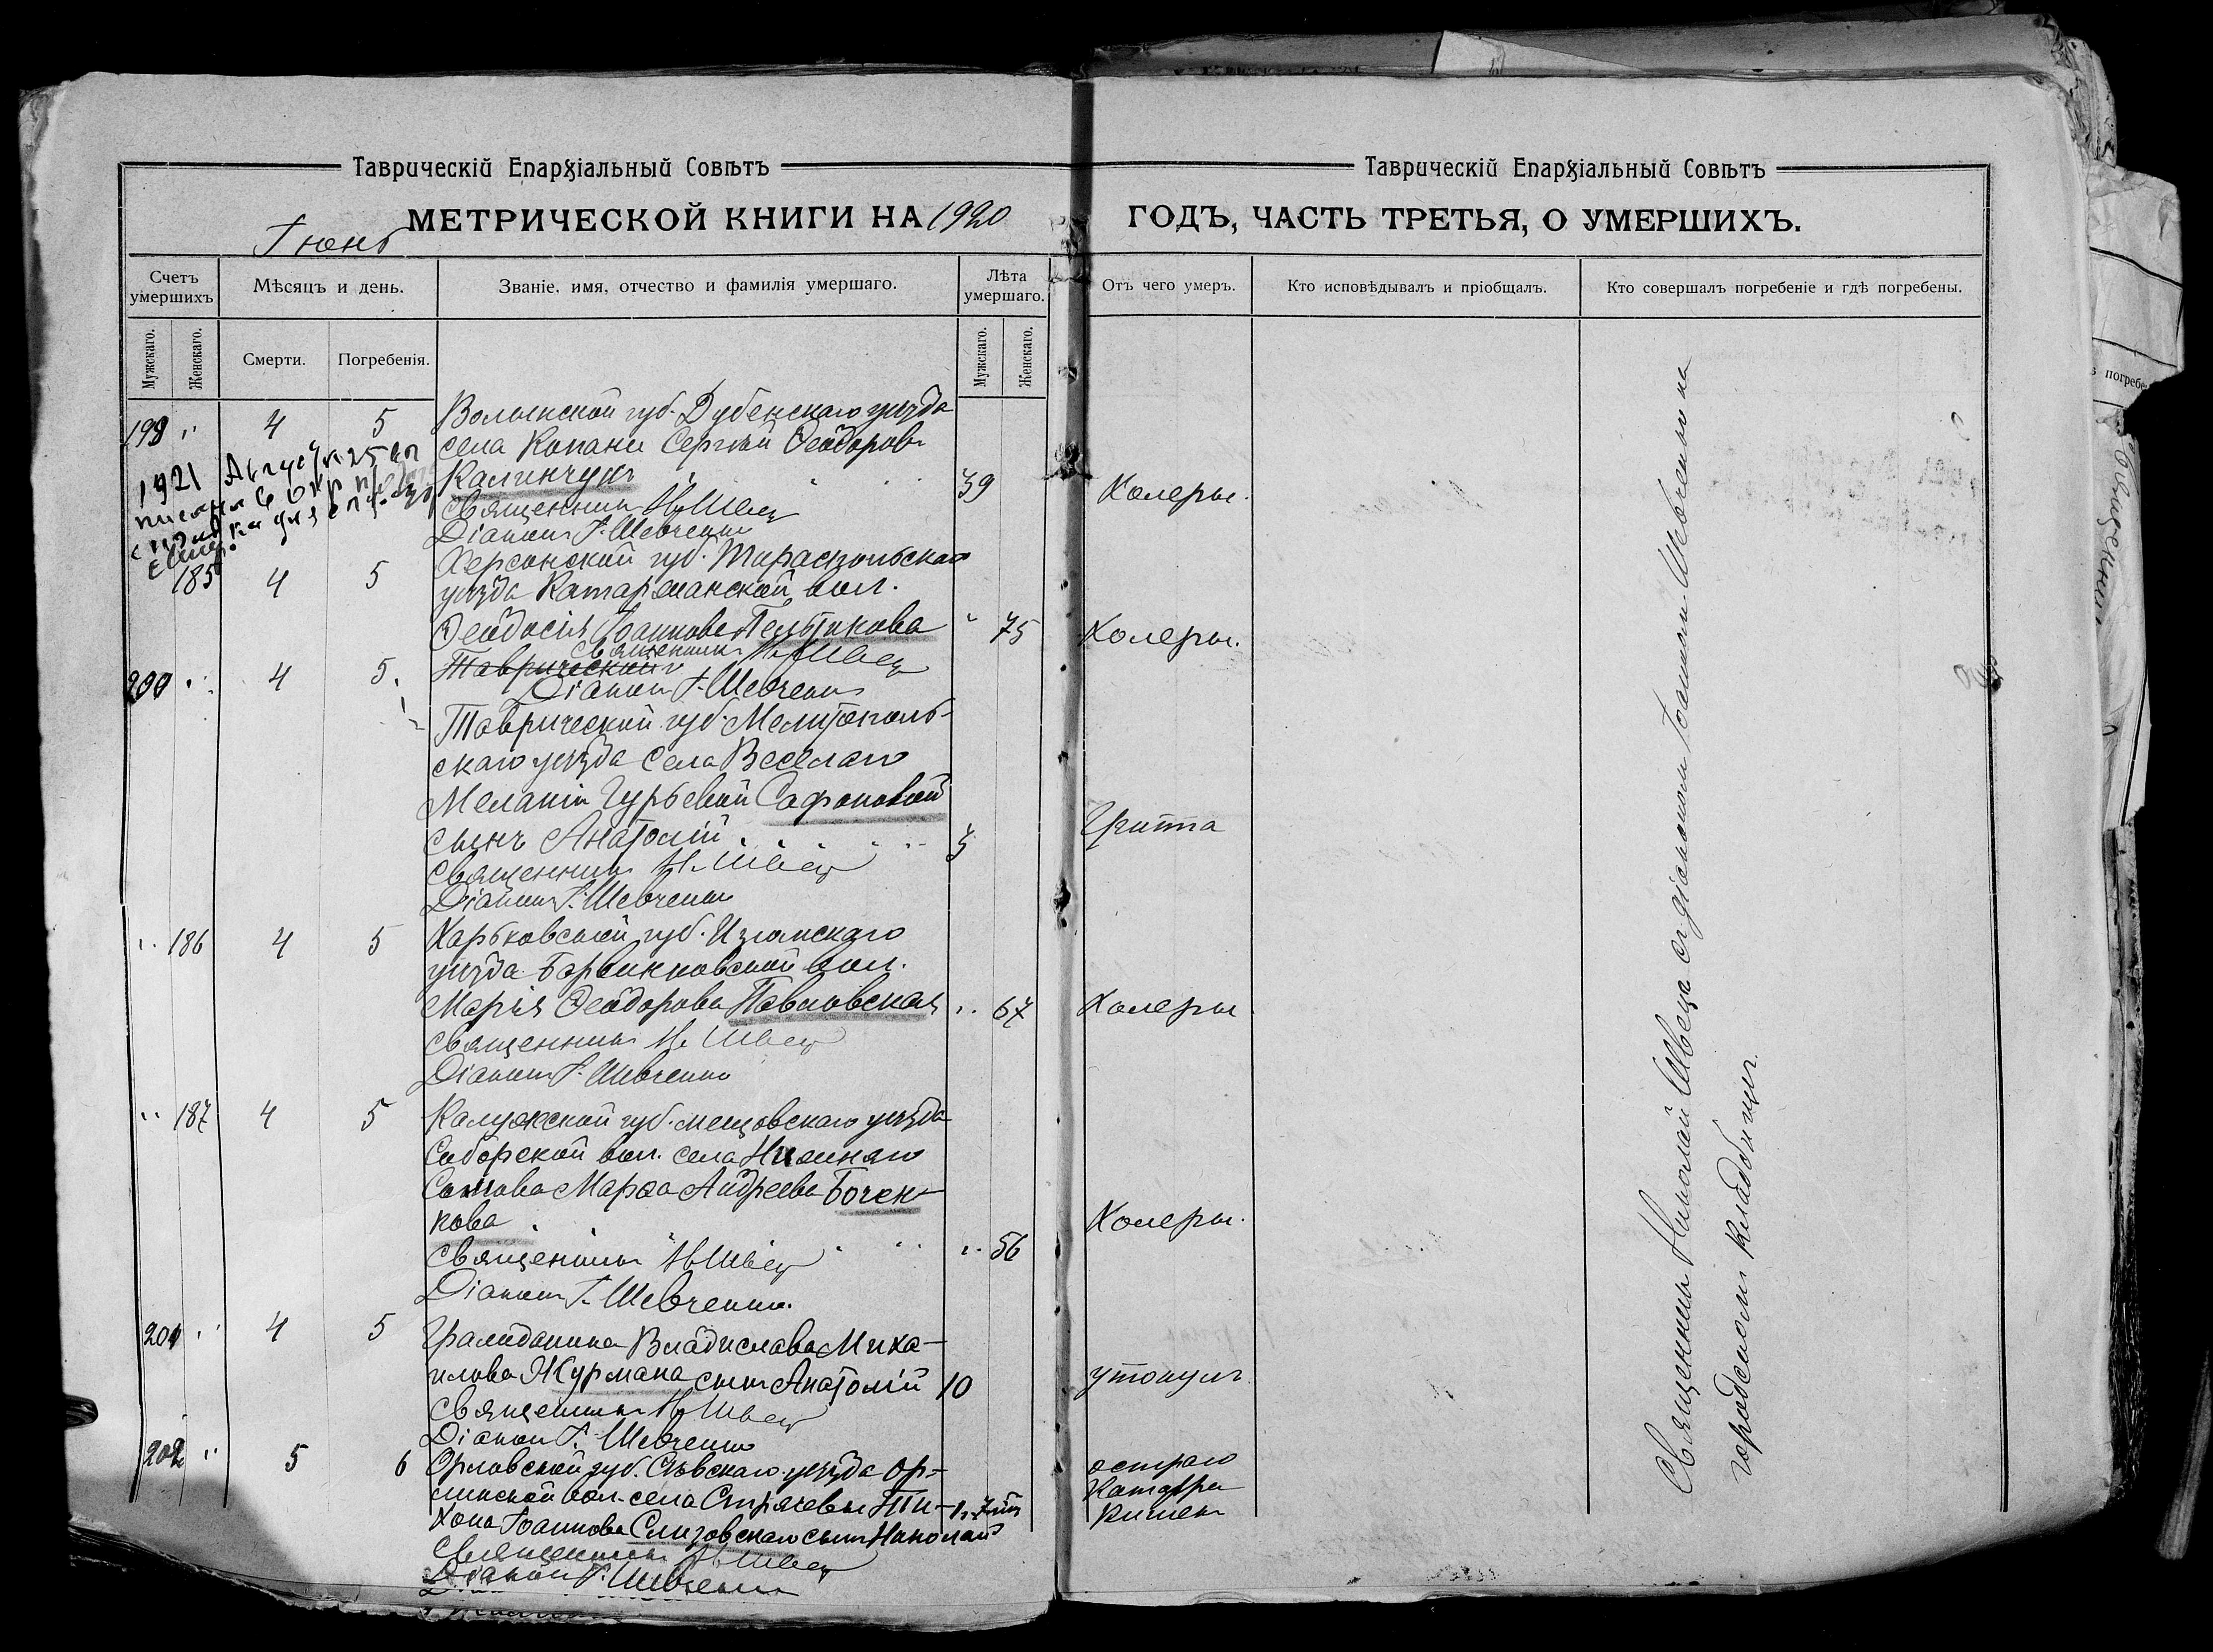 Таврическій Епархіальный Совѣтъ
МЕТРИЧЕСКОЙ КНИГИ НА 1920
Іюнь
Счетъ умершихъ
Мѣсяцъ и день.
Званіе, имя, отчество и фамилія умершаго.
Лѣта умершаго.
Мужскаго.
Женскаго.
Смерти.
Погребенія.
Мужскаго.
Женскаго.
199 " 4 5 Волынской губ. Дубенскаго уѣзда
села Копани Сергѣй Ѳеодоров
Калинчукъ 39
Священникъ Н. Швец
Діаконъ І. Шевченко
1921 Август 25
185 4 5 Херсонской губ. Тираспольскаго
уѣзда Катаржанской вол.
Ѳеодосія Іоаннова Пельтикова " 75
Священникъ Н. Швец
200 " 4 5. Таврической
Діаконъ І. Шевченко
Таврической губ. Мелитополь-
скаго уѣзда села Веселаго
Меланіи Гурьевой Сафоновой
сынъ Анатолій 3
Священникъ Н. Швец
Діаконъ І. Шевченко
" 186 4 5 Харьковской губ. Изюмскаго
уѣзда Барвинковской вол.
Марія Ѳеодорова Павловская " 67
Священникъ Н. Швец
Діаконъ І. Шевченко
" 187 4 5 Калужской губ. мещовскаго уѣзда
вол. села
Марѳа Андреева Бочен-
кова
Священникъ Н. Швец " 56
Діаконъ І. Шевченко.
201 " 4 5 Гражданина Владислава Миха-
илова Журмана сынъ Анатолій 10
Священникъ Н. Швец
Діаконъ І. Шевченко
202 " 5 6 Орловской губ. Сѣвскаго уѣзда
вол. села Ти-
хона Іоаннова Слизовскаго сынъ Николай
Священникъ Н. Швец
Діаконъ І. Шевченко
Таврическій Епархіальный Совѣтъ
ГОДЪ, ЧАСТЬ ТРЕТЬЯ, О УМЕРШИХЪ.
Отъ чего умеръ.
Кто исповѣдывалъ и пріобщалъ.
Кто совершалъ погребеніе и гдѣ погребены.
Холеры.
Холеры.
Гриппа
Холеры
Холеры.
утонулъ.
остраго
Катарра
кишек
Священникъ Николай Швецъ съ діакономъ Іоанномъ Шевченко на
городскомъ кладбищѣ.